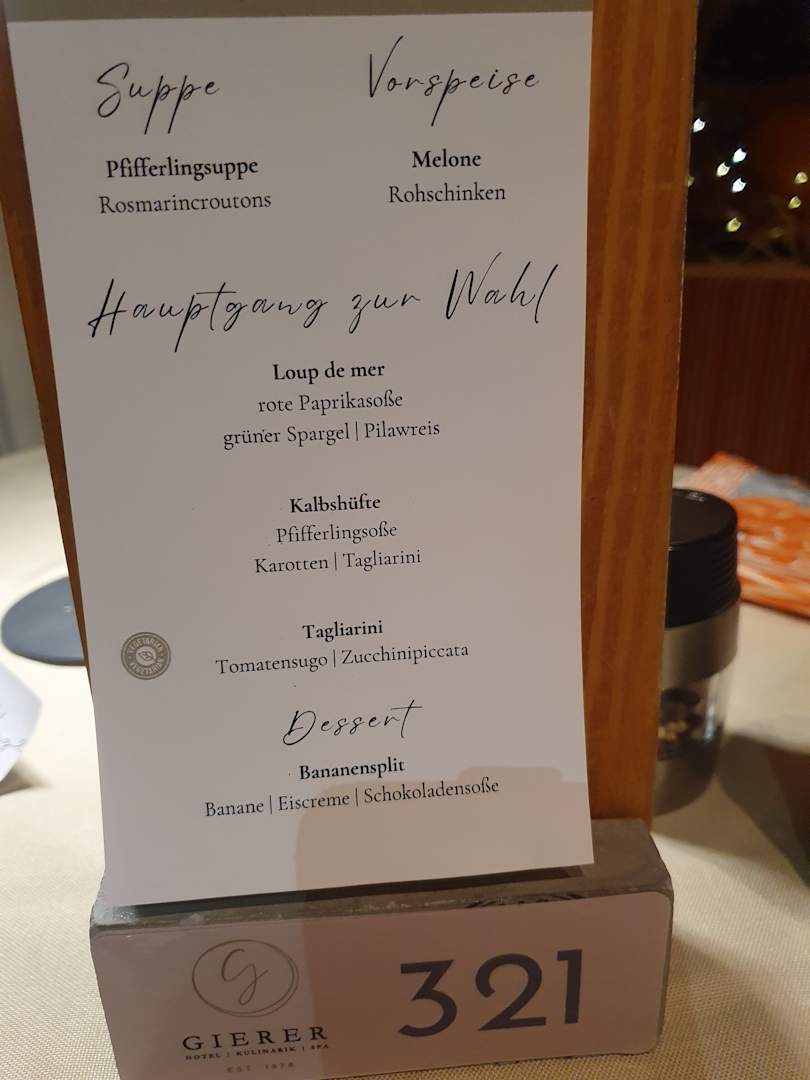 Suppe
Pfifferlingsuppe
Rosmarincroutons
Vorspeise
Melone
Rohschinken
Hauptgang zur Wahl
Loup de mer
rote Paprikasoße
grüner Spargel | Pilawreis
Kalbshüfte
Pfifferlingsoße
Karotten | Tagliarini
VEGETARIAN
VEGETARIAN
Tagliarini
Tomatensugo | Zucchinipiccata
Dessert
Bananensplit
Banane | Eiscreme | Schokoladensoße
G
GIERER
HOTEL | KULINARIK | SPA
EST.
321